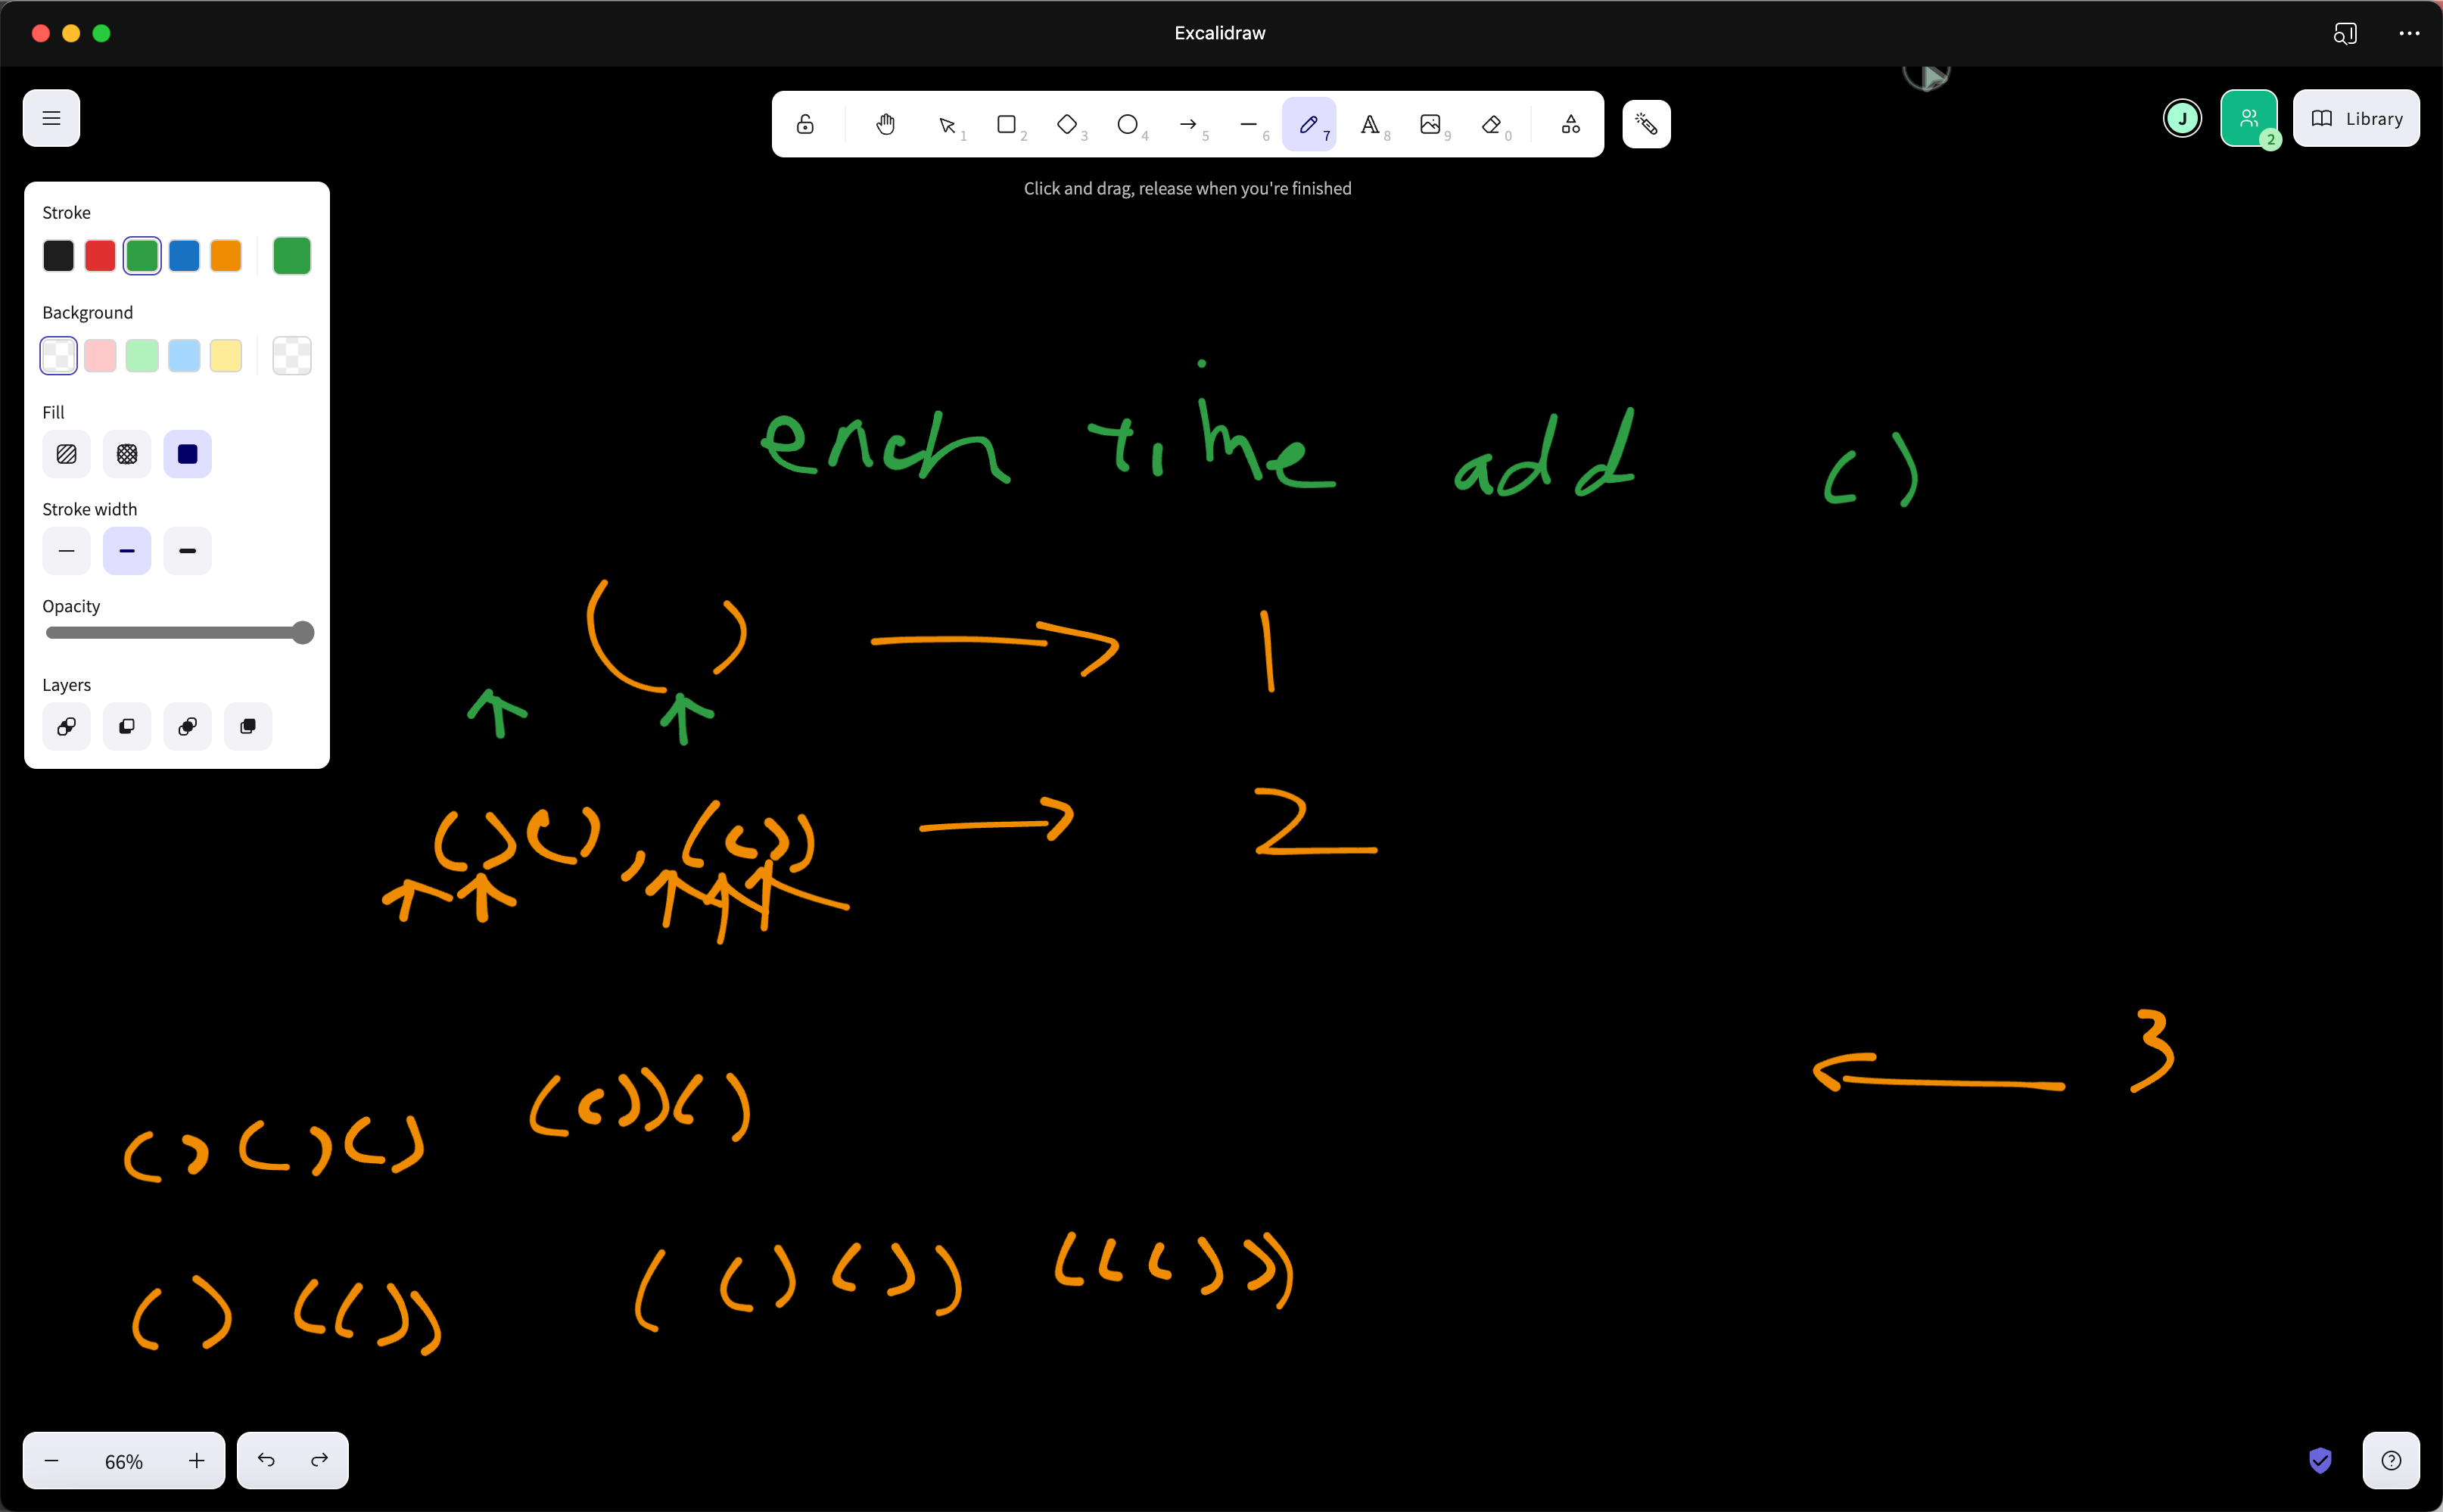 Excalidraw
1
2
3
4
5
6
7
8
9
0
J
2
Library
Click and drag, release when you're finished
Stroke
Background
Fill
Stroke width
Opacity
Layers
each time add ()
() → 1
()(), (()) → 2
← 3
()()() (())()
()(()) (()()) ((()))
66%